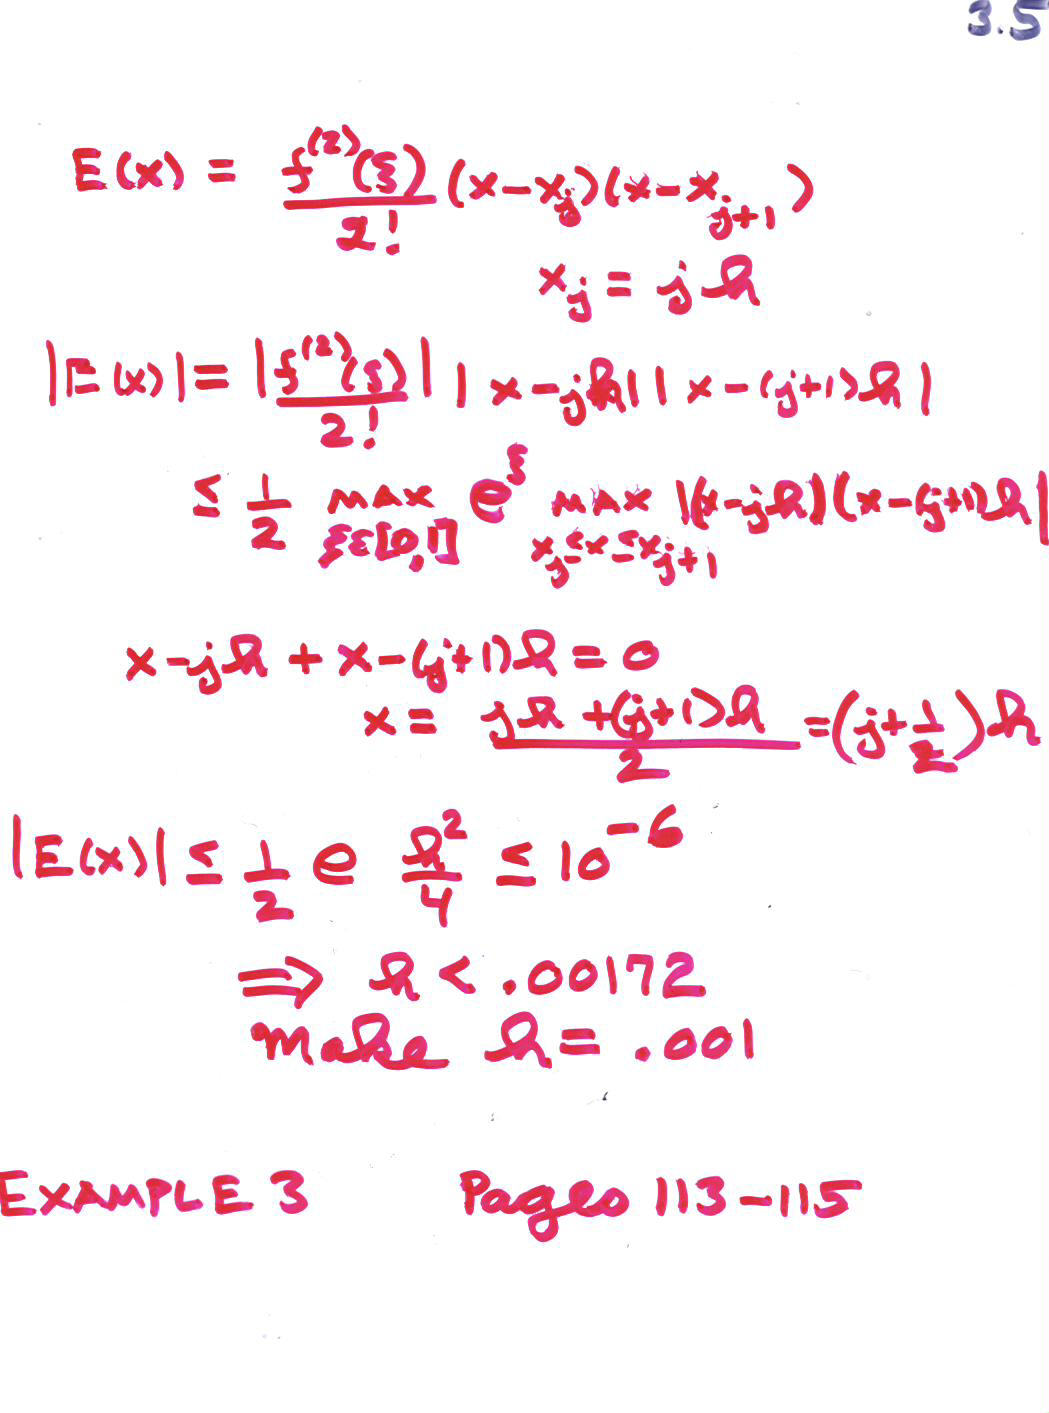 3.5
E(x) = f^(2)(ξ)/2! (x-x_j)(x-x_{j+1})
x_j = jh
|E(x)| = |f^(2)(ξ)/2!| |x-jh||x-(j+1)h|
≤ 1/2 max_{ξε[0,1]} e^ξ max_{x_j≤x≤x_{j+1}} |(x-jh)(x-(j+1)h|
x-jh + x-(j+1)h = 0
x = jh+(j+1)h/2 = (j+1/2)h
|E(x)| ≤ 1/2 e h^2/4 ≤ 10^-6
⇒ h < .00172
make h = .001
EXAMPLE 3 Pages 113-115